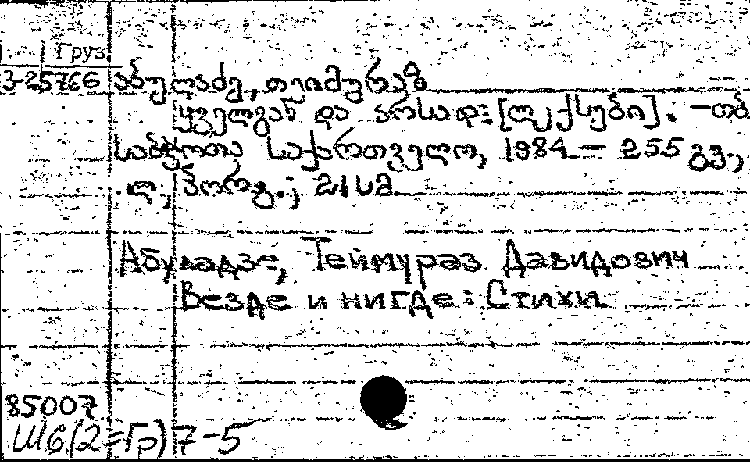 Груз.
3-25766 აბულაძე, თეიმურაზ
ყველგან და არსად: [ლექსები]. — თბ.
საბჭოთა საქართველო, 1984. — 255 გვ.,
ლ, პორტ.; 21 სმ
Абуладзе, Теймураз Давидович
Везде и нигде: Стихи
85007
Ш6(2=Гр)7-5